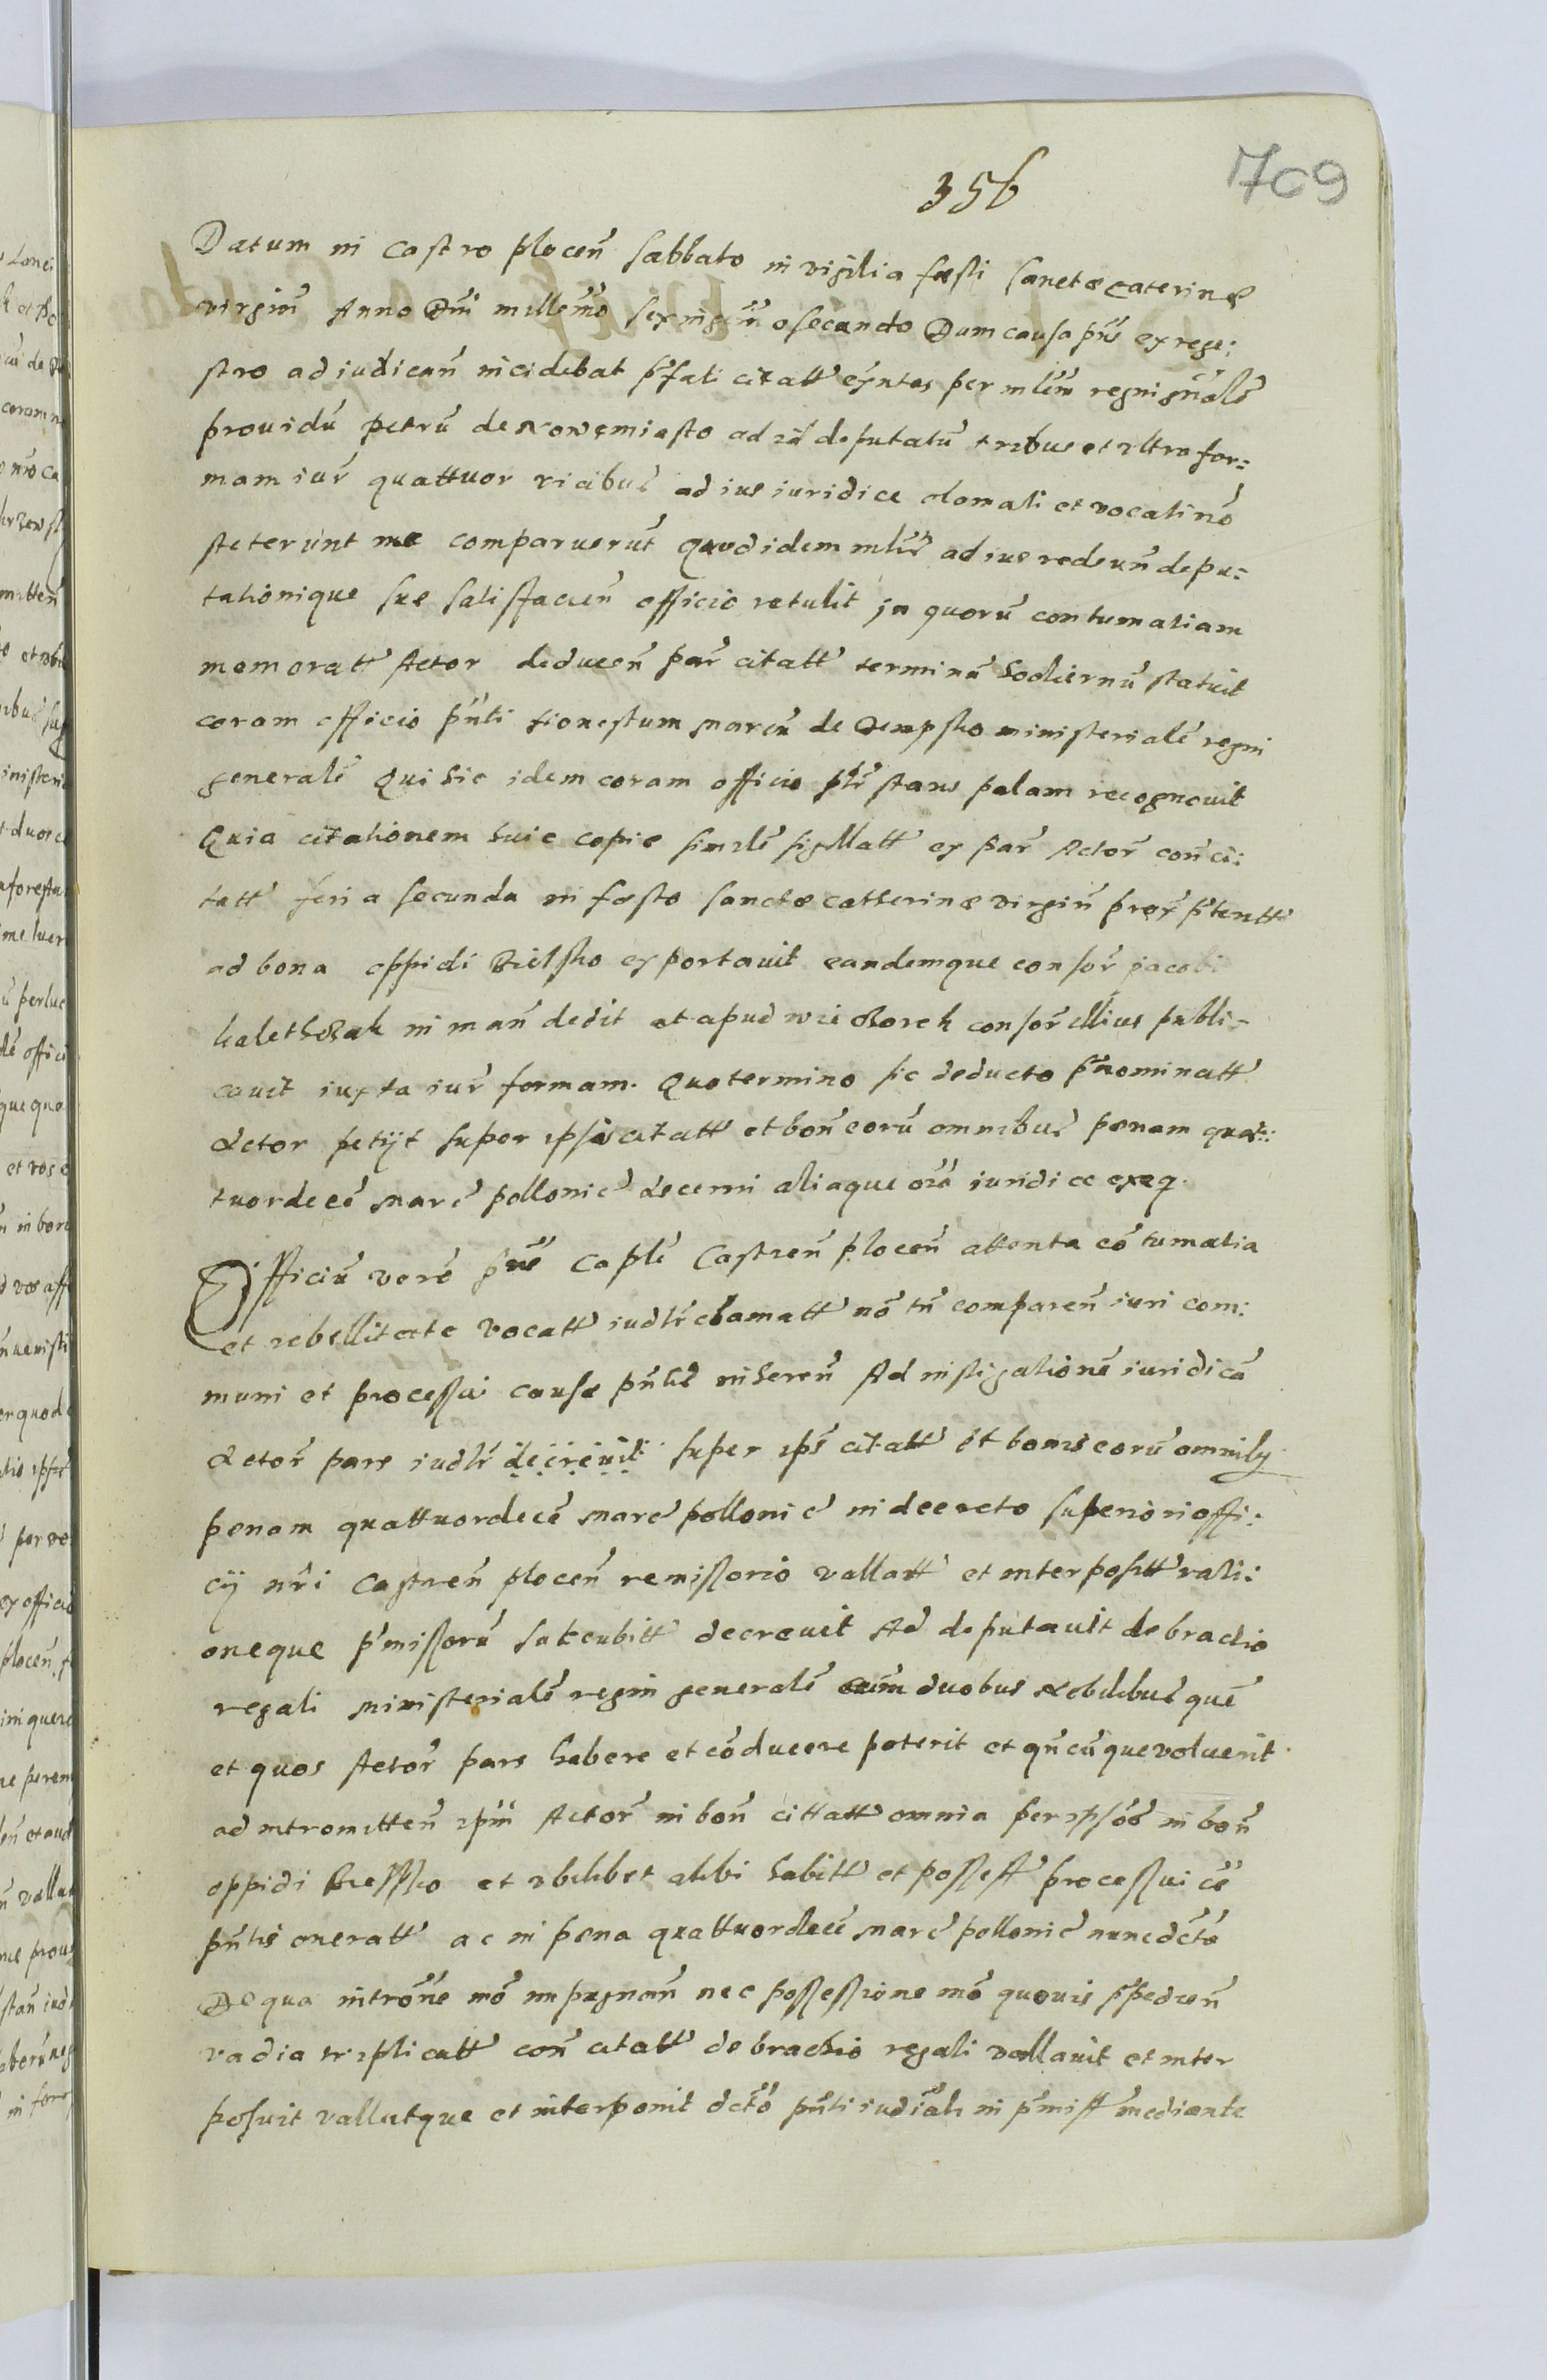 356
709
Datum in Castro plocen̄ Sabbato in vigilia festi sanctæ Caterinæ
virgin̄ Anno Dn̄i millemo sexingen̄osecundo Dum causa pn̄s ex rege:
stro ad iudican̄ incidebat p̄fati citatt' eẏntes per mlēm regni gn̄alē
prouidū petrū de nowemiasto ad id deputatū tribus et vltra for:
mam iur̄ quattuor vicibus ad ius iuridice clamati et vocati nō
steterunt nec comparuerūt Quod idem mlīs ad ius redeun̄ depu:
tationique suæ satisfacien̄ officio retulit jn quorū contumatiam
memoratt' Actor deducen̄ par̄ citatt' terminū hodiernū statuit
coram officio pn̄ti Honestum Marcū de Dempsko ministerialē regni
generalē Qui hic idem coram officio pl̄r stans palam recognouit
Quia citationem huic copiæ similē sigillatt' ex par̄ Actor̄ con̄ ci:
tatt' feria secunda in festo sanctæ catherinæ virgin̄ prox̄ p̄teritt'
ad bona oppidi Bielsko exportauit eandemque consor̄ jacobi
in man̄ dedit et apud consor̄ illius publi-
cauit iuxta iur̄ formam. Quo termino sic deducto p̄nominatt'
Actor petijt super ipsis citatt' et bon̄ eorū omnibus pœnam quat:
tuordecē marc̄ pollonic̄ decerni aliaque oīa iuridice exeq.
Officiū verō pn̄s Caplē Castren̄ plocen̄ attenta cōtumatia
et rebellitate vocatt' iudlr̄ clamatt' nō tn̄ comparen̄ iuri com:
muni et processui causæ pn̄tis inheren̄ Ad instigationē iuridicā
Actor̄ pars iudlr̄ decreuit super ip̄s citatt' et bonis eorū omnibȝ
pœnam quattuordecē marc̄ pollonic̄ in decreto superiori offi:
cij nr̄i Castren̄ plocen̄ remissorio vallatt' et interpositt' rati:
oneque p̄missorū succubitt' decreuit Ad deputauit de brachio
regali ministerialē regni generalē cum duobus nobilibus quē
et quos Actor̄ pars habere et cōducere poterit et qn̄cūque voluerit
ad intromitten̄ ipm̄ Actor̄ in bon̄ cittatt' omnia per ipsōs in bon̄
oppidi Bielsko et vbilibet alibi habitt' et possess' processui cē
pn̄tis oneratt' ac in pœna quattuordecē marc̄ pollonic̄ nunc dctā
De qua introēne mō impugnan̄ nec possessione mō quouis p̄pedien̄
vadia triplicatt' con̄ citatt' de brachio regali vallauit et inter
posuit vallatque et interponit dctō pn̄ti iudiāli in p̄miss' mediante